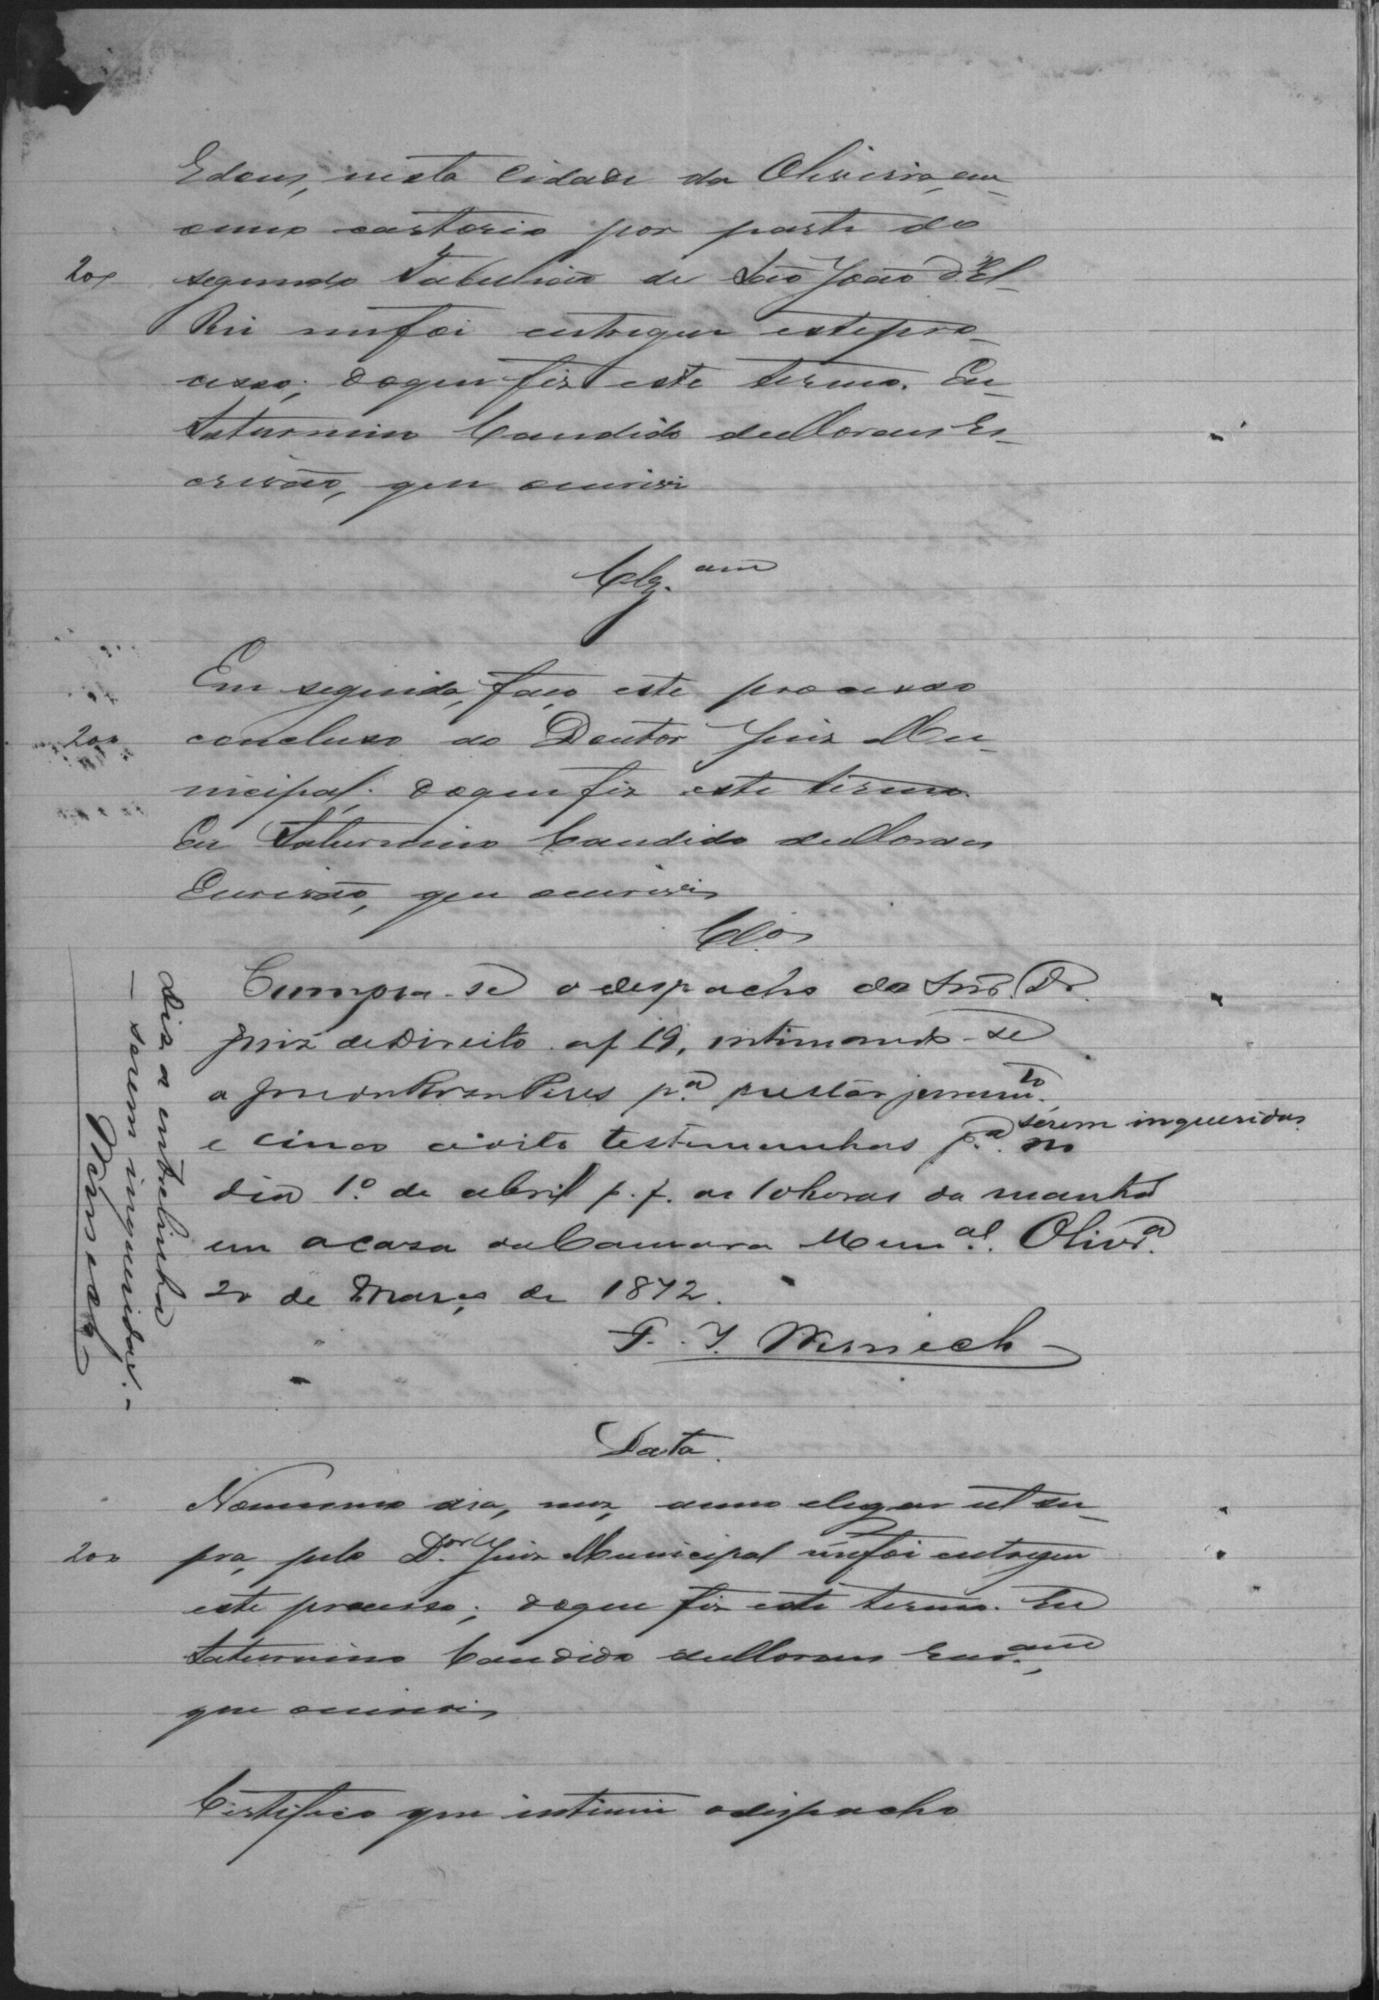 Edous, nesta Cidade da Oliveira, em
o meu cartorio por parte do
200 segundo Tabellião de São João d'El-
Rei me foi entregue este pro-
cesso; do que fiz este termo. Eu
Saturnino Candido de Moraes Es-
crivão, que escrevi
Clz.am
Em seguida, faço este processo
200 concluso ao Doutor Juiz Mu-
nicipal; do que fiz este termo.
Eu Saturnino Candido de Moraes
Escrivão, que escrevi
Clos
Cumpra-se o despacho do Snr. Dr.
Juiz de Direito af 19, intimando-se
a pª prestar juramto.
e cinco a oito testemunhas pª. serem inqueridas no
dia 1º de abril p. f. as 10 horas da manhã
em a casa da Camara Munal. Olivrª.
20 de Março de 1872.
F. J. Wernech
Diz a entrelinha
— serem inqueridas. –
Werneck
Data.
No mesmo dia, mez, anno e lugar ut su-
200 pra, pelo Dor Juiz Municipal me foi entregue
este processo; do que fiz este termo. Eu
Saturnino Candido de Moraes Escram,
que escrevi
Certifico que intimei o despacho